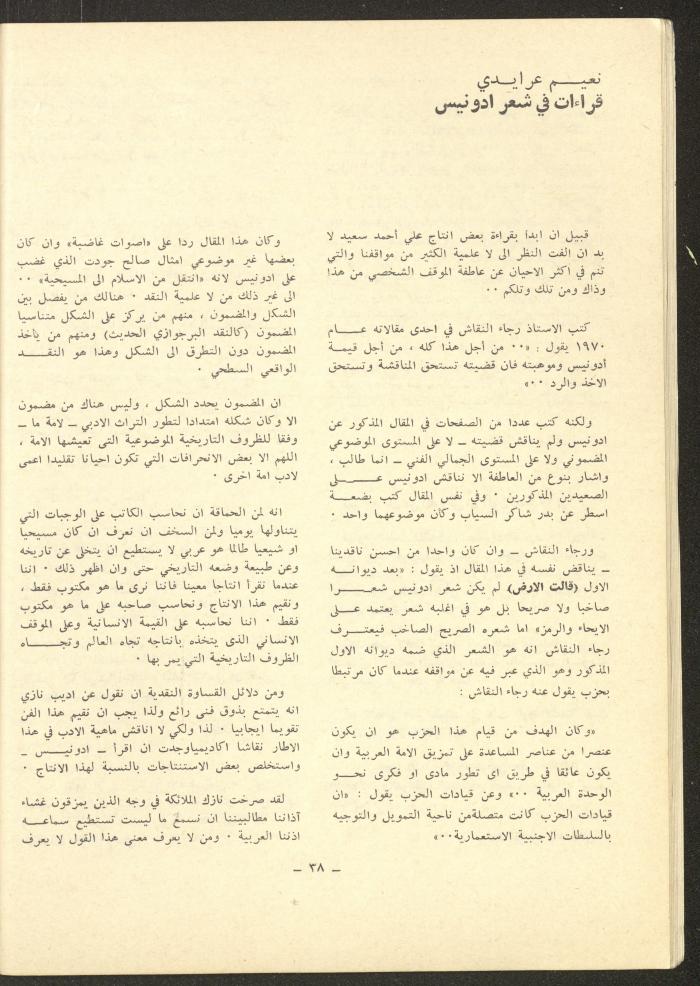 نعيم عرايدي
قراءات في شعر ادونيس
قبيل ان ابدأ بقراءة بعض انتاج علي أحمد سعيد لا
بد ان الفت النظر الى لا علمية الكثير من مواقفنا والتي
تنم في اكثر الاحيان عن عاطفة الموقف الشخصي من هذا
وذاك ومن تلك وتلكم ٠٠
كتب الاستاذ رجاء النقاش في احدى مقالاته عام
١٩٧٠ يقول : «٠٠ من أجل هذا كله ، من أجل قيمة
أدونيس وموهبته فان قضيته تستحق المناقشة وتستحق
الاخذ والرد ٠٠»
ولكنه كتب عددا من الصفحات في المقال المذكور عن
ادونيس ولم يناقش قضيته ــ لا على المستوى الموضوعي
المضموني ولا على المستوى الجمالي الفني ــ انما طالب ،
واشار بنوع من العاطفة الا نناقش ادونيس على
الصعيدين المذكورين ٠ وفي نفس المقال كتب بضعة
اسطر عن بدر شاكر السياب وكان موضوعهما واحد ٠
ورجاء النقاش ــ وان كان واحدا من احسن ناقدينا
ــ يناقض نفسه في هذا المقال اذ يقول : «بعد ديوانه
الاول (قالت الارض) لم يكن شعر ادونيس شعرا
صاخبا ولا صريحا بل هو في اغلبه شعر يعتمد على
الايحاء والرمز» اما شعره الصريح الصاخب فيعترف
رجاء النقاش انه هو الشعر الذي ضمه ديوانه الاول
المذكور وهو الذي عبر فيه عن مواقفه عندما كان مرتبطا
بحزب يقول عنه رجاء النقاش :
«وكان الهدف من قيام هذا الحزب هو ان يكون
عنصرا من عناصر المساعدة على تمزيق الامة العربية وان
يكون عائقا في طريق اى تطور مادى او فكرى نحو
الوحدة العربية ٠٠» وعن قيادات الحزب يقول : «ان
قيادات الحزب كانت متصلة من ناحية التمويل والتوجيه
بالسلطات الاجنبية الاستعمارية٠٠»
وكان هذا المقال ردا على «اصوات غاضبة» وان كان
بعضها غير موضوعي امثال صالح جودت الذي غضب
على ادونيس لانه «انتقل من الاسلام الى المسيحية» ٠٠
الى غير ذلك من لا علمية النقد ٠ هنالك من يفصل بين
الشكل والمضمون ، منهم من يركز على الشكل متناسيا
المضمون (كالنقد البرجوازي الحديث) ومنهم من ياخذ
المضمون دون التطرق الى الشكل وهذا هو النقد
الواقعي السطحي ٠
ان المضمون يحدد الشكل ، وليس هناك من مضمون
الا وكان شكله امتدادا لتطور التراث الادبي ــ لامة ما ــ
وفقا للظروف التاريخية الموضوعية التي تعيشها الامة ،
اللهم الا بعض الانحرافات التي تكون احيانا تقليدا اعمى
لادب امة اخرى ٠
انه لمن الحماقة ان نحاسب الكاتب على الوجبات التي
يتناولها يوميا ولمن السخف ان نعرف ان كان مسيحيا
او شيعيا طالما هو عربي لا يستطيع ان يتخلى عن تاريخه
وعن طبيعة وضعه التاريخي حتى وان اظهر ذلك ٠ اننا
عندما نقرأ انتاجا معينا فاننا نرى ما هو مكتوب فقط ،
ونقيم هذا الانتاج ونحاسب صاحبه على ما هو مكتوب
فقط ٠ اننا نحاسبه على القيمة الانسانية وعلى الموقف
الانساني الذى يتخذه بانتاجه تجاه العالم وتجاه
الظروف التاريخية التي يمر بها ٠
ومن دلائل القساوة النقدية ان نقول عن اديب نازي
انه يتمتع بذوق فنى رائع ولذا يجب ان نقيم هذا الفن
تقويما ايجابيا ٠ لذا ولكي لا اناقش ماهية الادب في هذا
الاطار نقاشا اكاديميا وجدت ان اقرأ ــ ادونيس ــ
واستخلص بعض الاستنتاجات بالنسبة لهذا الانتاج ٠
لقد صرخت نازك الملائكة في وجه الذين يمزقون غشاء
آذاننا مطالبيننا ان نسمع ما ليست تستطيع سماعه
اذننا العربية ٠ ومن لا يعرف معنى هذا القول لا يعرف
ــ ٣٨ ــ